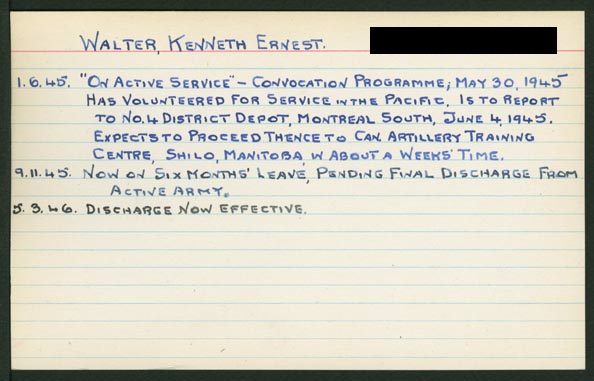 WALTER, KENNETH ERNEST.
1.6.45. "ON ACTIVE SERVICE" - CONVOCATION PROGRAMME; MAY 30, 1945
HAS VOLUNTEERED FOR SERVICE IN THE PACIFIC. IS TO REPORT
TO NO. 4 DISTRICT DEPOT, MONTREAL SOUTH, JUNE 4, 1945.
EXPECTS TO PROCEED THENCE TO CAN. ARTILLERY TRAINING
CENTRE, SHILO, MANITOBA, IN ABOUT A WEEKS' TIME.
9.11.45. NOW ON SIX MONTHS' LEAVE, PENDING FINAL DISCHARGE FROM
ACTIVE ARMY.
5.3.46. DISCHARGE NOW EFFECTIVE.